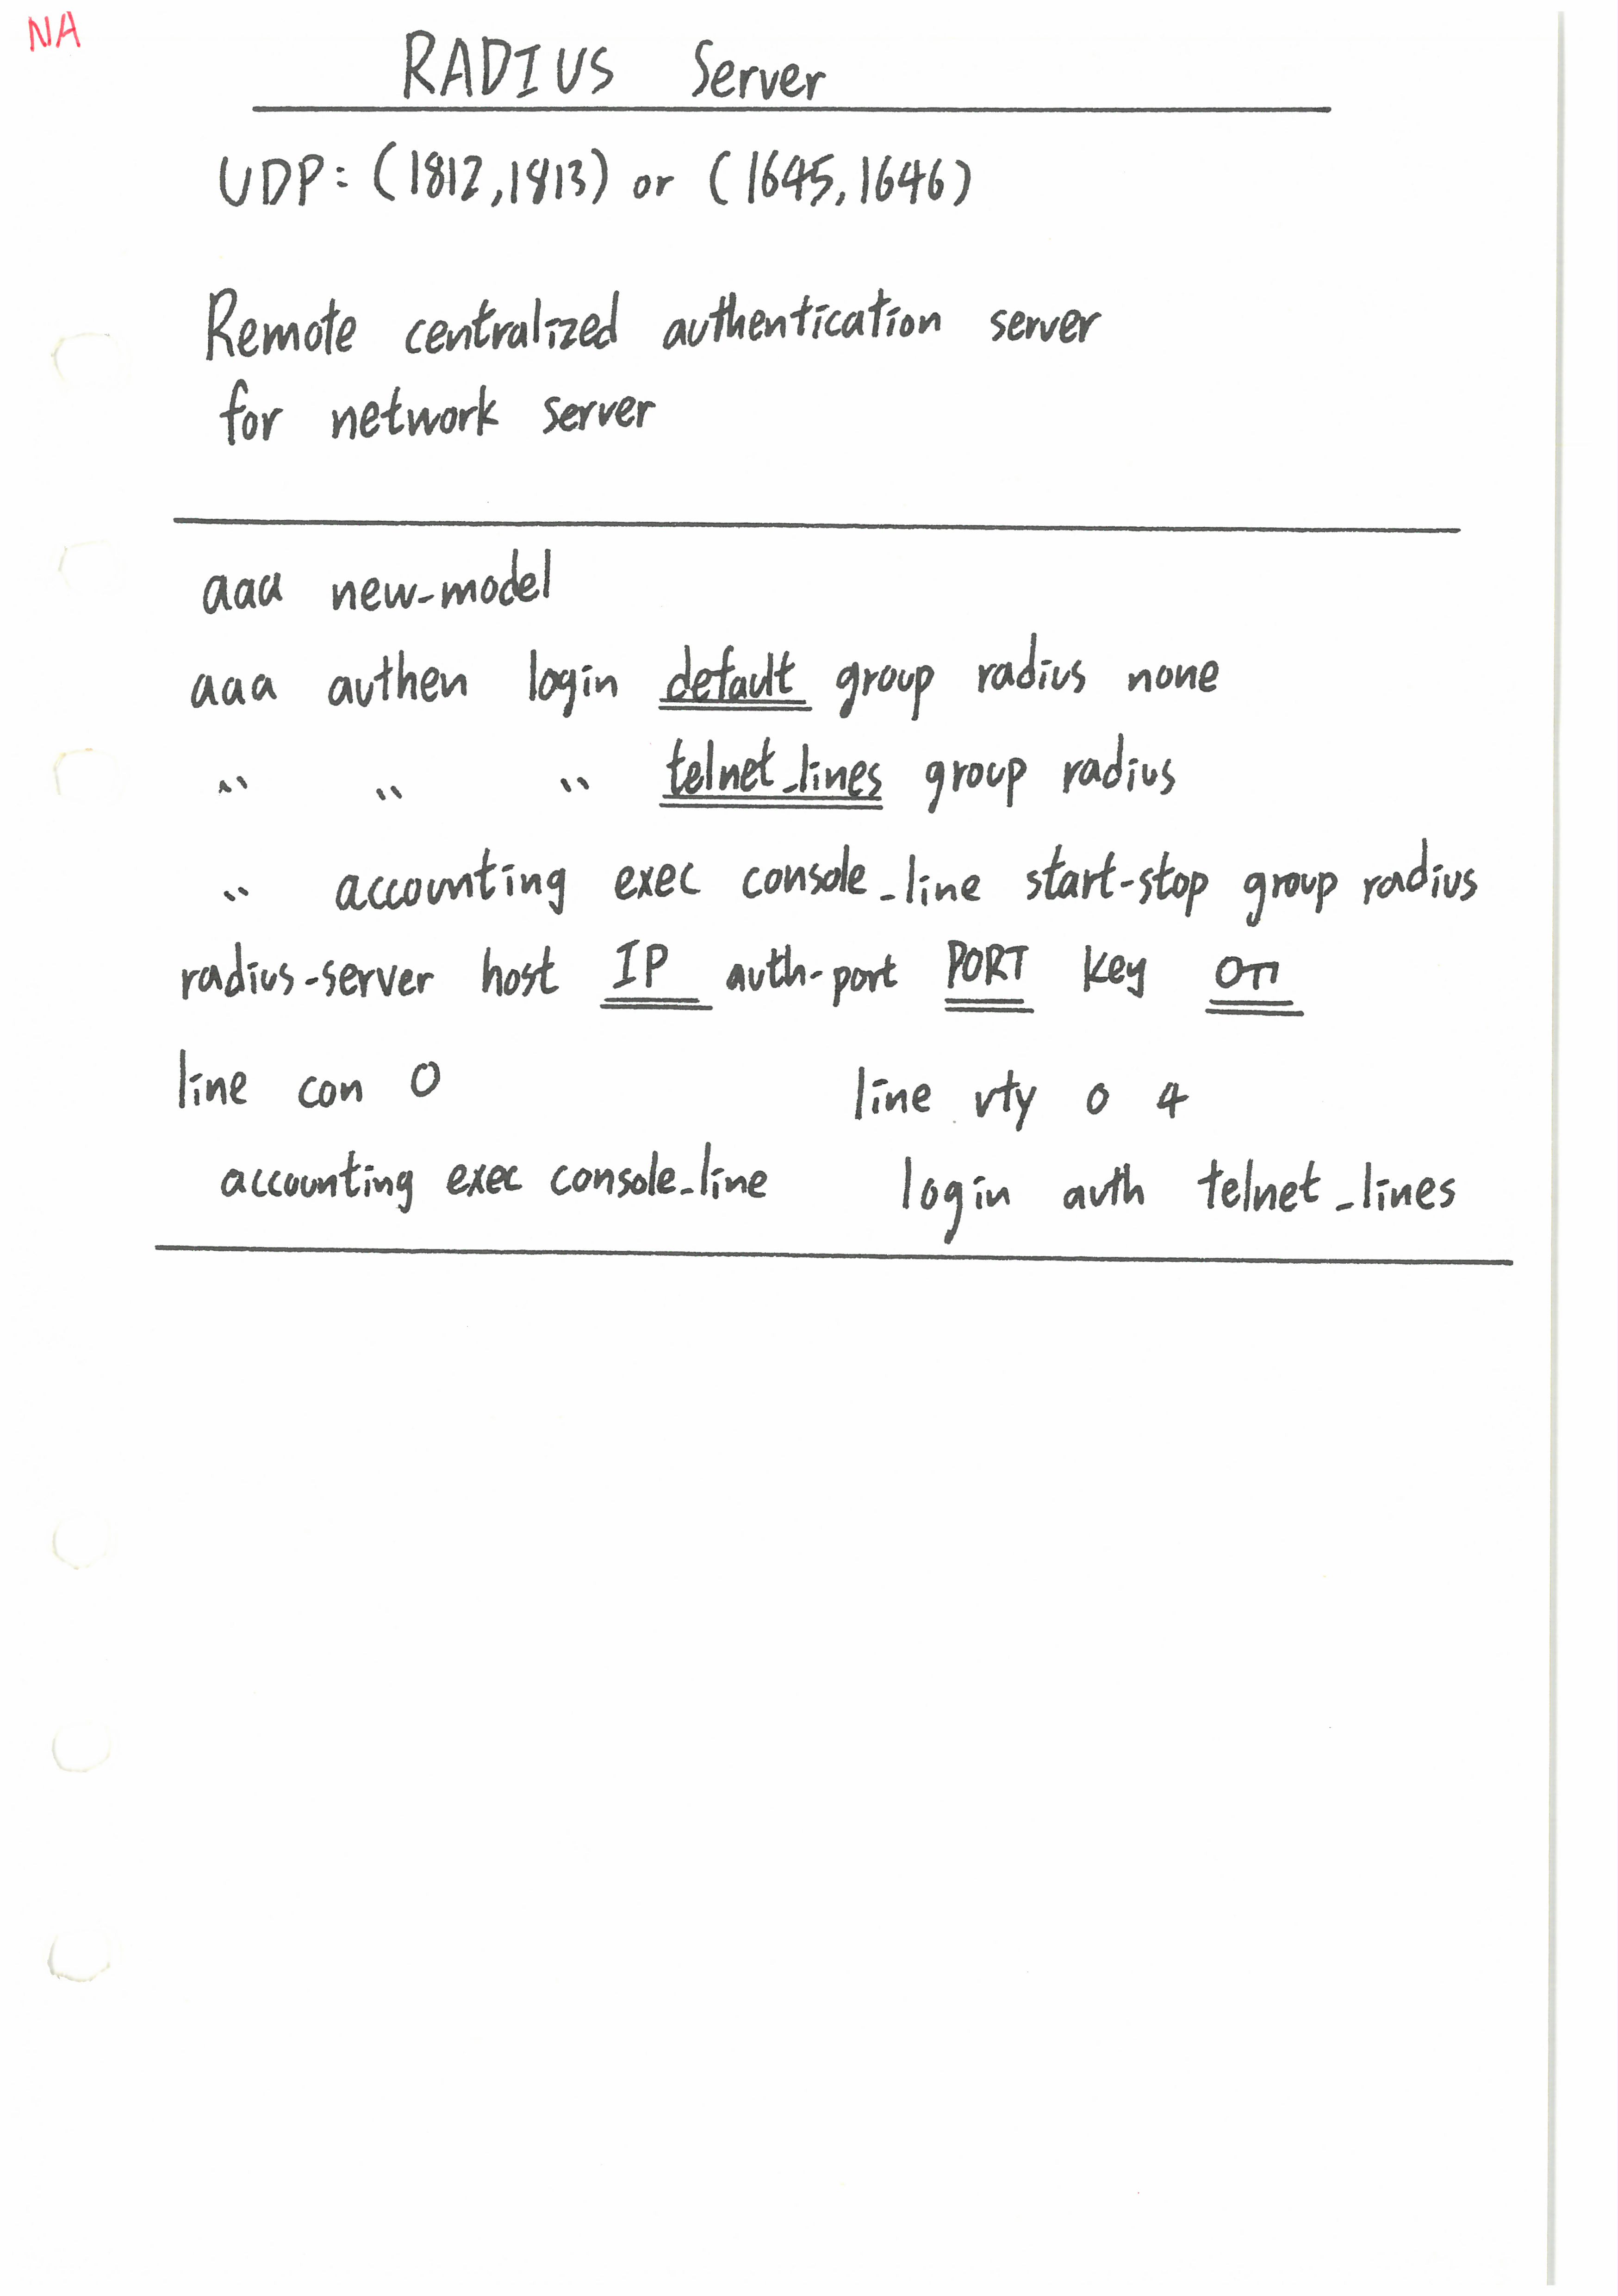 NA
RADIUS Server
UDP: (1812,1813) or (1645,1646)
Remote centralized authentication server
for network server
aaa new-model
aaa authen login default group radius none
〃 〃 〃 telnet_lines group radius
〃 accounting exec console_line start-stop group radius
radius-server host IP auth-port PORT key
line con 0
accounting exec console_line
line vty 0 4
login auth telnet_lines